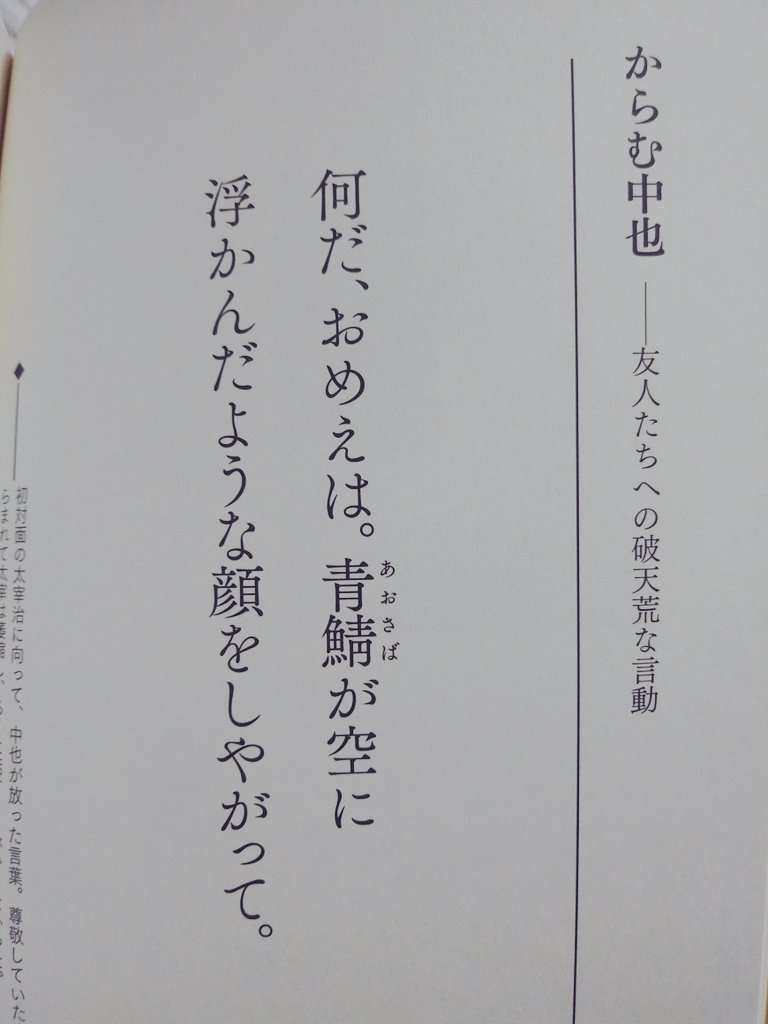 からむ中也 ――友人たちへの破天荒な言動
何だ、おめえは。青鯖が空に
あおさば
浮かんだような顔をしやがって。
◆―― 初対面の太宰治に向って、中也が放った言葉。尊敬していた
らまれて太宰は